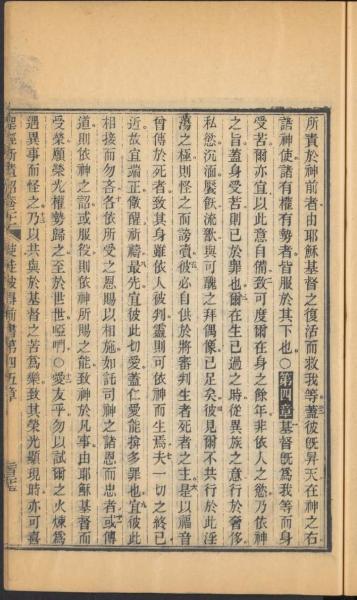 所責於神前者由耶穌基督之復活而救我等蓋彼旣昇天在神之右
諸神使諸有權有勢者皆服於其下也○第四章基督旣爲我等而身
受苦爾亦宜以此意自備致可度爾在身之餘年非依人之慾乃依神
之旨蓋身受苦則已於罪也爾在生已過之時從異族之意行於奢侈
私慾沉湎饜飫流歠與可醜之拜偶像已足矣彼見爾不共行於此淫
蕩之極則怪之而謗讟彼必自供於將審判生者死者之主是以福音
曾傳於死者致其身雖依人被判靈則可依神而生焉夫一切之終已
近故宜端正儆醒祈禱最先宜彼此切愛蓋仁愛能揜多罪也宜彼此
相接而勿吝各依所受之恩賜以相施如託司神之諸恩而忠者或傳
道則依神之詔或服役則依神所賜之能致神於凡事由耶穌基督而
受榮願榮光權勢歸之至於世世啞們○愛友乎勿以試爾之火煉爲
遇異事而怪之乃以共與於基督之苦爲樂致其榮光顯現時亦可喜
聖經新遺詔卷 使徒彼得前書第四五章